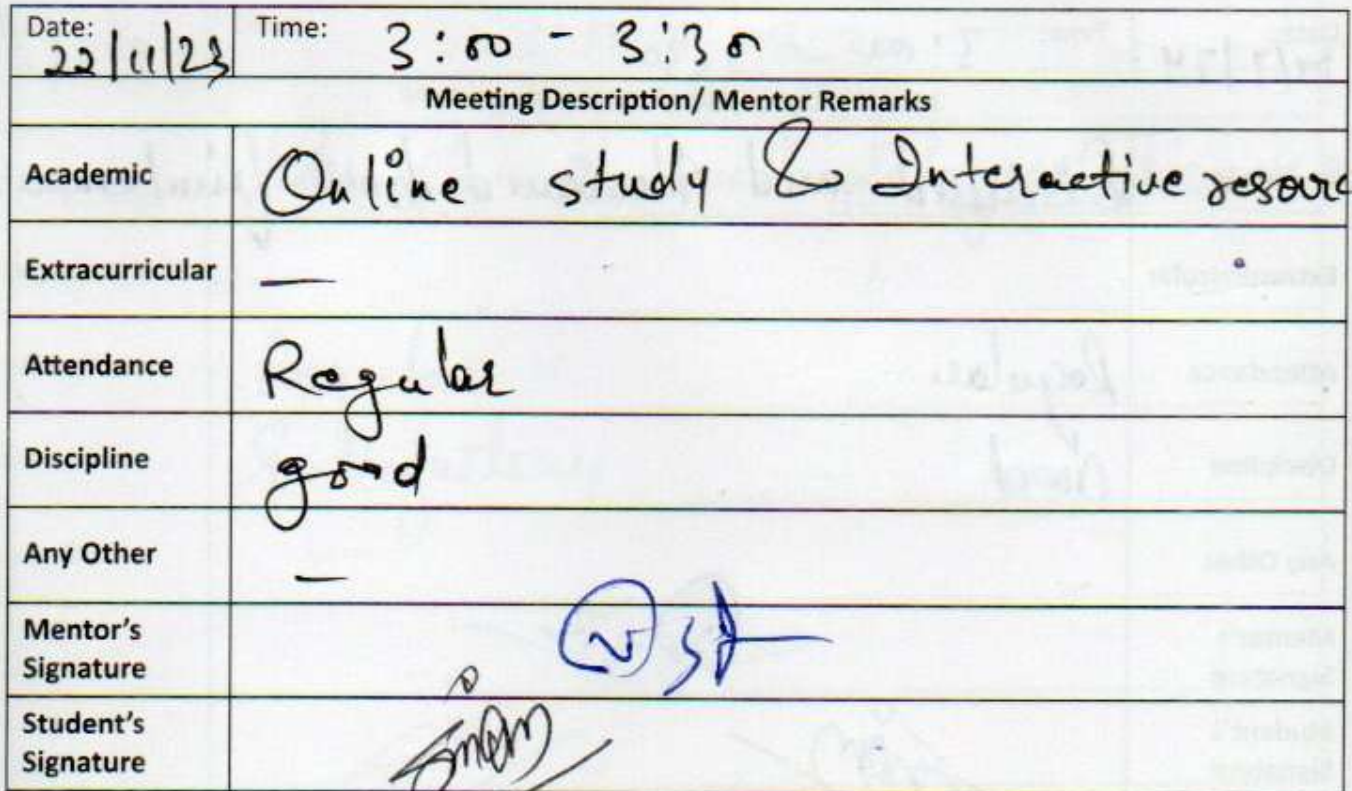 Date: 22/11/23 Time: 3:00 - 3:30
Meeting Description/ Mentor Remarks
Academic Online study & Interactive resourc
Extracurricular —
Attendance Regular
Discipline good
Any Other —
Mentor's
Signature
Student's
Signature